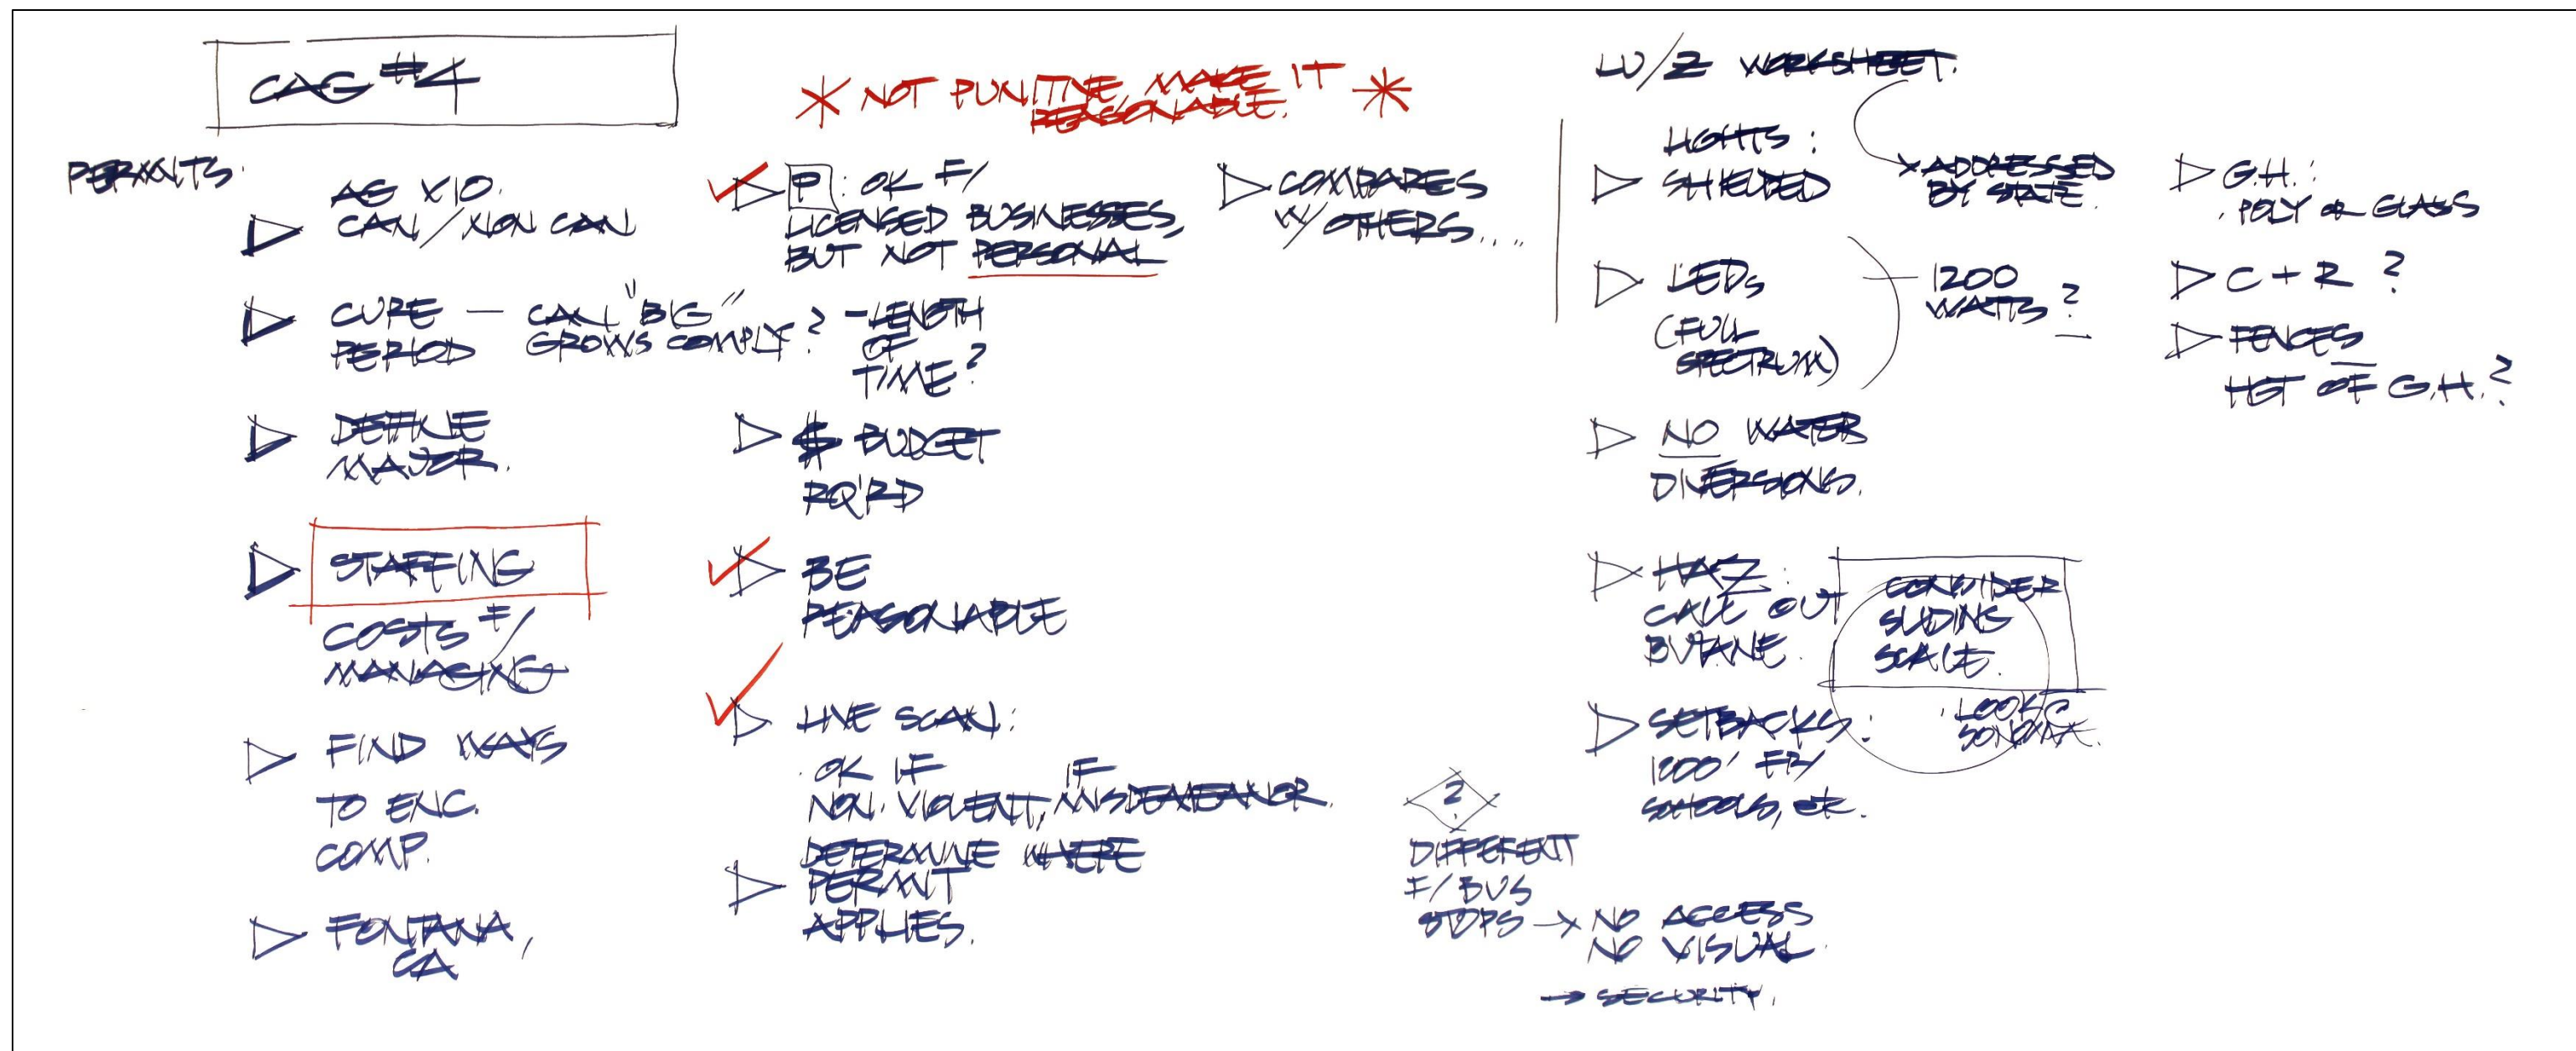 CAG #4
* NOT PUNITIVE, MAKE IT *
REASONABLE.
PERMITS.
AG X10.
CAN/NON CAN
CURE — CAN "BIG"
PERIOD GROWS COMPLY?
DEFINE
MAJOR.
STAFFING
COSTS F/
MANAGING
FIND WAYS
TO ENC.
COMP.
FONTANA,
CA
P : OK F/
LICENSED BUSINESSES,
BUT NOT PERSONAL
- LENGTH
OF
TIME?
$ BUDGET
RQ'RD
BE
REASONABLE
LIVE SCAN:
. OK IF IF
NON. VIOLENT, MISDEMEANOR.
DETERMINE WHERE
PERMIT
APPLIES.
COMPARES
W/ OTHERS....
LU/Z WORKSHEET.
LIGHTS:
SHIELDED
ADDRESSED
BY STATE.
LEDs
(FULL
SPECTRUM)
1200
WATTS?
NO WATER
DIVERSIONS.
HAZ:
CALL OUT
BUTANE.
CONSIDER
SLIDING
SCALE.
SETBACKS:
1200' FR/
SCHOOLS, etc.
. LOOK @
SONOMA.
?
DIFFERENT
F/ BUS
STOPS → NO ACCESS
NO VISUAL.
→ SECURITY.
G.H.:
. POLY OR GLASS
C + R ?
FENCES
HGT OF G.H.?